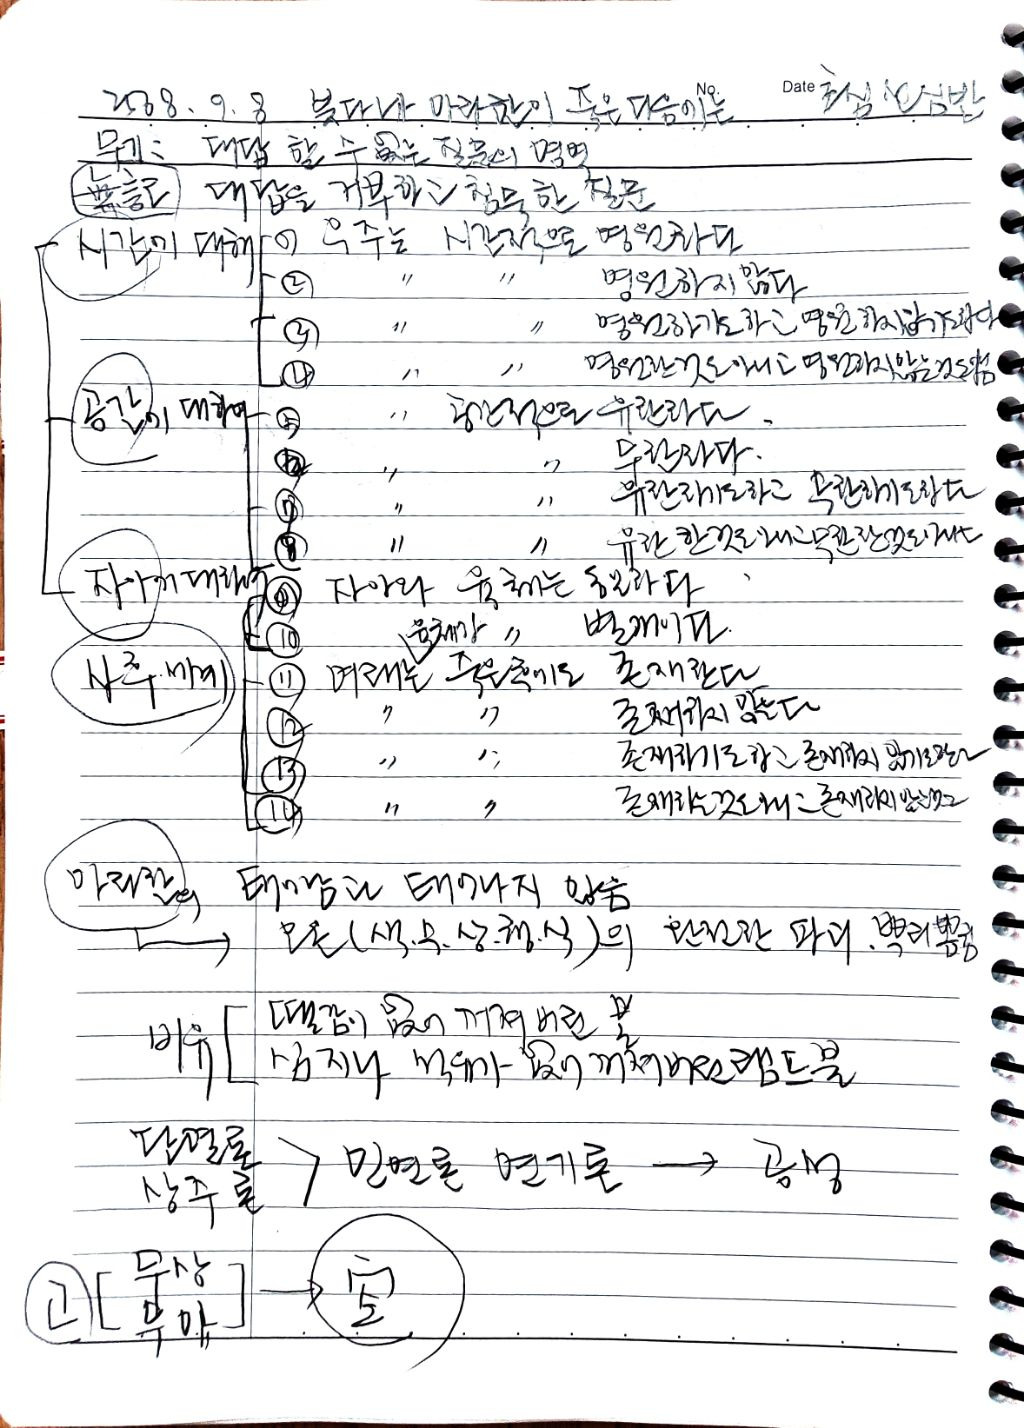 No. Date 초심 신심반
2568. 9. 8 붓다나 아라한이 죽은 다음에는
무기: 대답 할 수 없는 질문의 영역
無記 대답을 거부하고 침묵한 질문
시간에 대해 ① 우주는 시간적으로 영원하다
② 〃 〃 영원하지 않다
③ 〃 〃 영원하기도하고 영원하지않기도하다
④ 〃 〃 영원한것도아니고 영원하지않는것도아님
공간에 대하여 ⑤ 〃 공간적으로 유한하다.
⑥ 〃 〃 무한하다.
⑦ 〃 〃 유한하기도하고 무한하기도하다
⑧ 〃 〃 유한한것도아니고 무한한것도아니다
자아에 대하여 ⑨ 자아와 육체는 동일하다
⑩ 육체와 〃 별개이다.
사후세계 ⑪ 여래는 죽은후에도 존재한다
⑫ 〃 〃 존재하지 않는다
⑬ 〃 〃 존재하기도하고 존재하지 않기도한다
⑭ 〃 〃 존재하는것도아니고 존재하지않는것도
아라한의 태어남과 태어나지 않음
→ 모든 (색.수.상.행.식)의 완전한 파괴. 뿌리뽑힘
비유 [땔감이 없어 꺼져 버린 불
심지나 기름이 없어 꺼져버린 램프불
단멸론
상주론 > 인연론 연기론 → 공성
고 [무상
무아] → 空